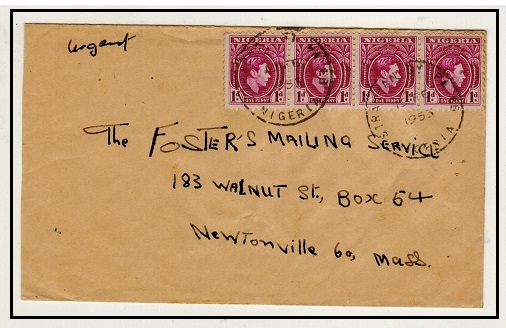 urgent
NIGERIA NIGERIA NIGERIA NIGERIA
1d 1d 1d 1d 1d 1d 1d
ONE PENNY ONE PENNY ONE PENNY ONE PENNY
NIGERIA
1953
The FOSTER'S MAILING SERVICE
183 WALNUT St., BOX 54
NEWTONVILLE 60, MASS.